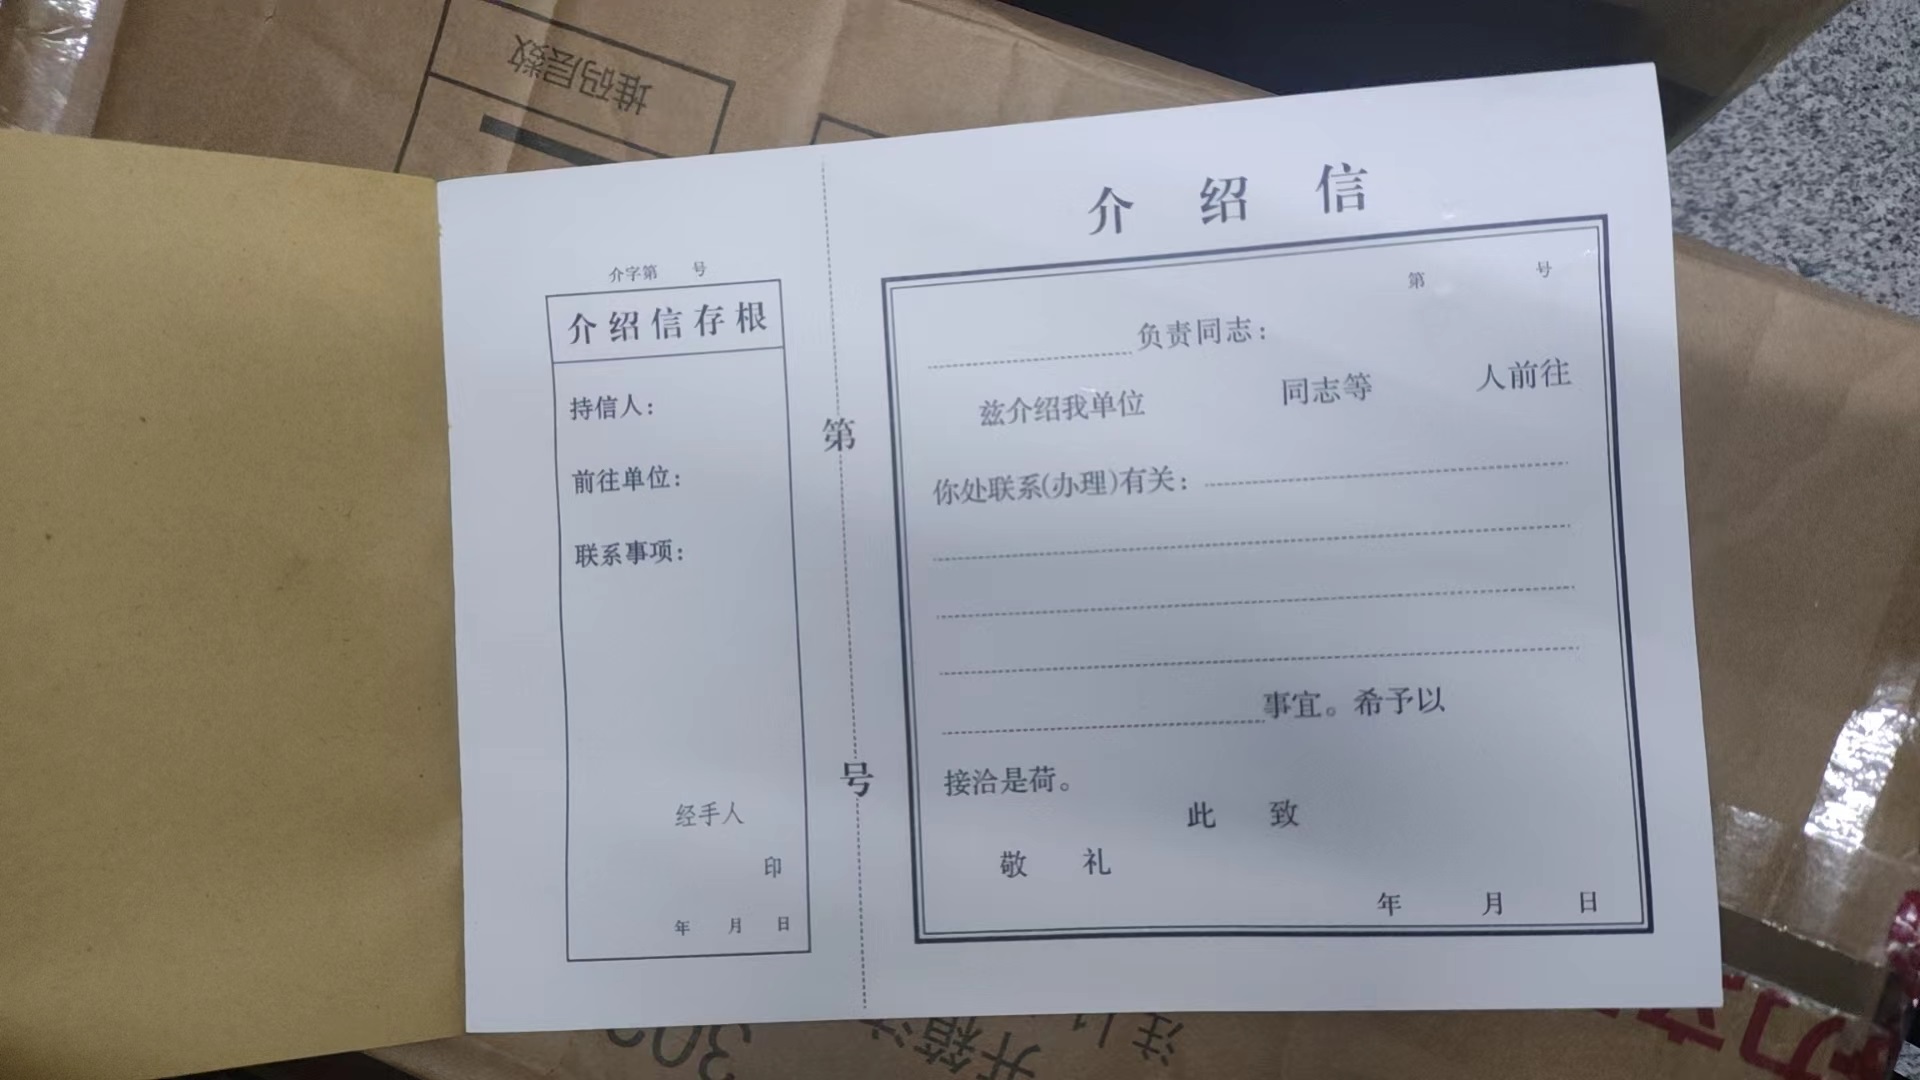 堆码层数
介字第 号
介绍信存根
持信人：
前往单位：
联系事项：
经手人
印
年 月 日
第
号
介 绍 信
第 号
负责同志：
兹介绍我单位 同志等 人前往
你处联系(办理)有关：
事宜。希予以
接洽是荷。
此 致
敬 礼
年 月 日
开箱注